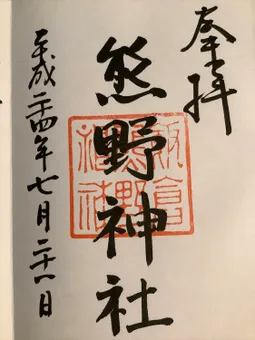 奉拝
熊野神社
飯倉
熊野
神社
平成二十四年七月二十一日